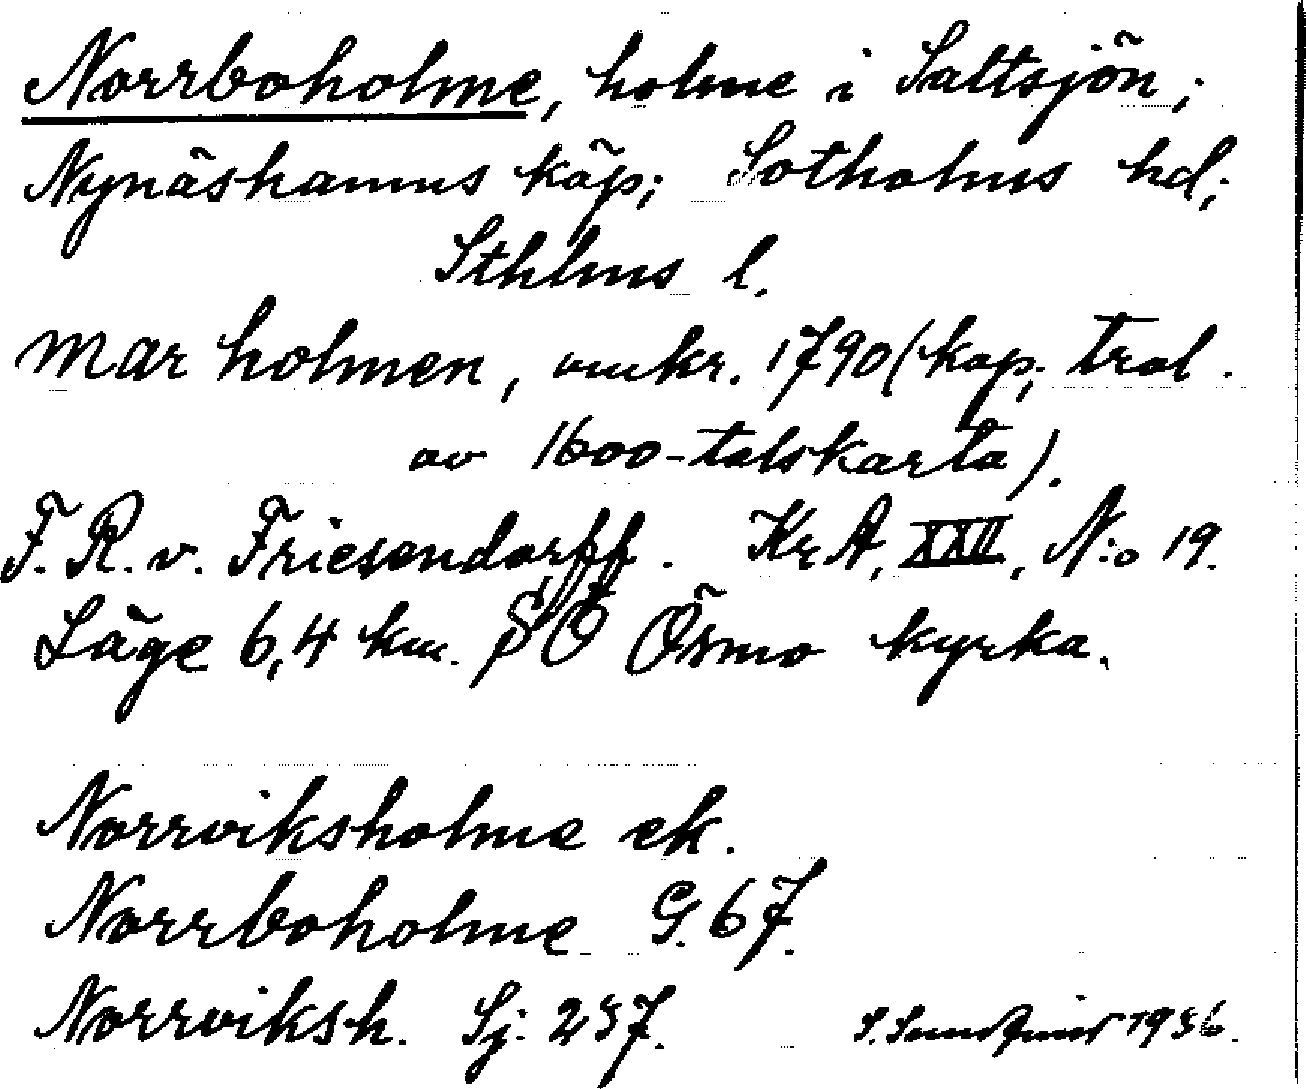 Norrboholme, holme i Saltsjön;
Nynäshamns köp; Sotholms hd;
Sthlms l.
Mar holmen, omkr. 1790 (kop; trol.
av 1600-talskarta).
F. R. v. Friesendorff. Kr A, XXII, N:o 19.
Läge 6,4 km. SÖ Ösmo kyrka.
Norrviksholme ek.
Norrboholme G. 67.
Norrviksh. Sj: 257. 1956.